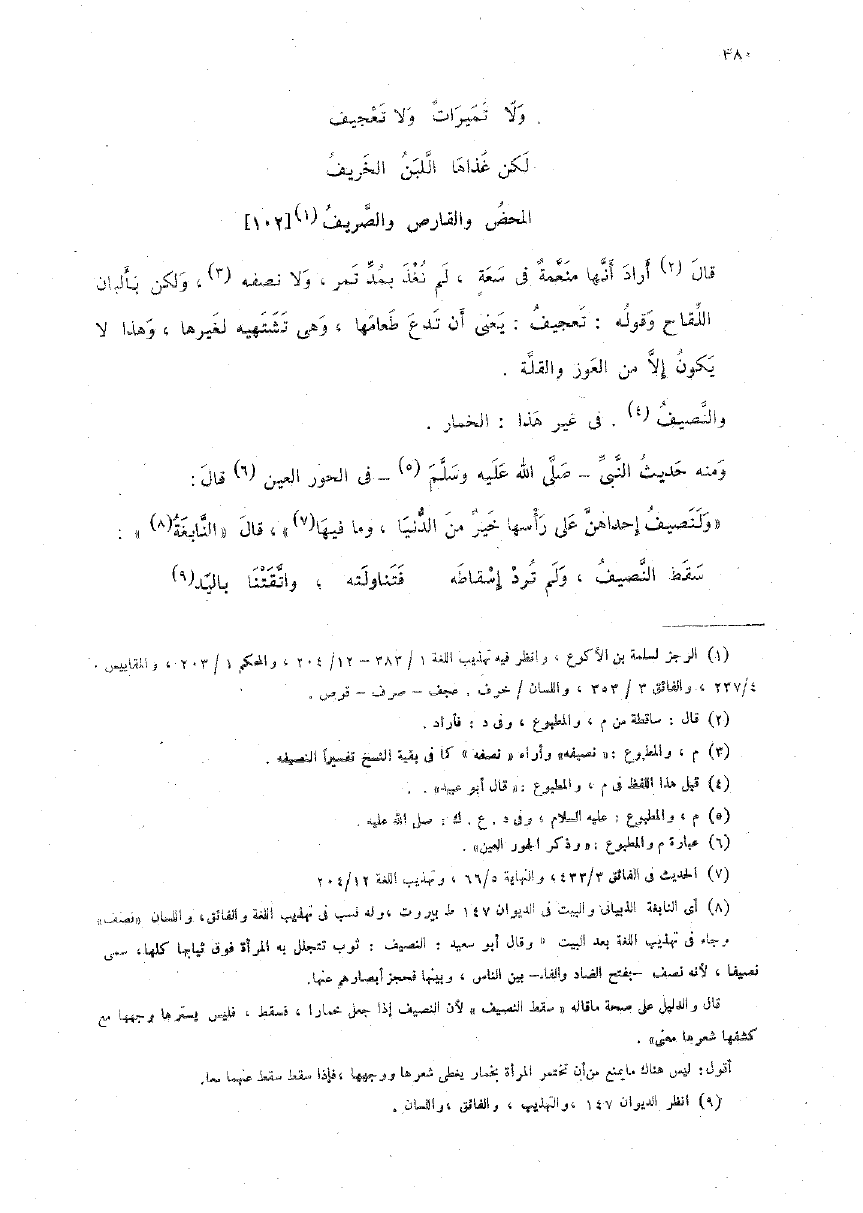 ٣٨٠
وَلَا تُمَيرَاتٌ وَلا تَعْجيف
لَكن غَذاهَا اللَّبَنُ الخَريفُ
المَحضُ والقارص والصَّريفُ (١) [١٠٢]
قالَ (٢) أَرادَ أَنَّها منَعَّمةٌ فى سَعَةٍ ، لَم تُغْذَ بمُدِّ تَمر ، وَلا نصفه (٣) ، وَلكن بَألبان
اللِّقاح وَقولُه : تَعجيفُ : يَعْنى أَن تَدعَ طَعامَها ، وَهى تَشْتَهيه لغَيرها ، وَهذا لا
يَكونُ إلاَّ من العَوز والقلَّة .
والنَّصيفُ (٤) . فى غير هَذا : الخمار .
وَمنه حَديثُ النَّبىِّ – صَلَّى الله عَلَيه وسَلَّمَ (٥) – فى الحور العين (٦) قالَ :
« وَلَنَصيفُ إحداهنَّ عَلى رَأسها خَيرٌ منَ الدُّنيَا ، وما فيهَا (٧) » ، قالَ « النَّابغَةُ (٨) » :
سَقَط النَّصيفُ ، وَلَم تُردْ إسْقاطَه فَتَناولَته ؛ واتَّقَتْنَا باليَد (٩)
(١) الرجز لسلمة بن الأكوع ، وانظر فيه تهذيب اللغة ١ / ٣٨٣ – ١٢ / ٢٠٤ ، والمحكم ١ / ٢٠٣ ، والمقاييس .
٤/ ٢٣٧ ، والفائق ٣ / ٣٥٣ ، واللسان / خرف . عجف – صرف – قرص .
(٢) قال : ساقطة من م ، والمطبوع ، وفى د : فأراد .
(٣) م ، والمطبوع : « نصيفه » وأراه « نصفه » كما فى بقية النسخ تفسيراً النصيفه .
(٤) قبل هذا اللفظ فى م ، والمطبوع : « قال أبو عبيد » . .
(٥) م ، والمطبوع : عليه السلام ، وفى د . ع . ك : صلى الله عليه .
(٦) عبارة م والمطبوع : « وذكر الحور العين » .
(٧) الحديث فى الفائق ٣/ ٤٣٣ ، والنهاية ٥/ ٦٦ ، وتهذيب اللغة ١٢/ ٢٠٤
(٨) أى النابغة الذبيانى والبيت فى الديوان ١٤٧ ط بيروت ، وله نسب فى تهذيب اللغة والفائق، واللسان « نصف »
وجاء فى تهذيب اللغة بعد البيت « وقال أبو سعيد : النصيف : ثوب تتجلل به المرأة فوق ثيابها كلها ، سمى
نصيفا ، لأنه نصف –بفتح الضاد والفاء– بين الناس ، وبينها فحجز أبصارهم عنها.
قال والدليل على صحة ماقاله « سقط النصيف » لأن النصيف إذا جعل خمارا ، فسقط ، فليس يسترها وجهها مع
كشفها شعرها معنى » .
أقول: ليس هناك مايمنع من أن تختمر المرأة بخمار يغطى شعرها ووجهها ،فإذا سقط سقط عنهما معا.
(٩) انظر الديوان ١٤٧ ،والتهذيب ، والفائق ،واللسان .